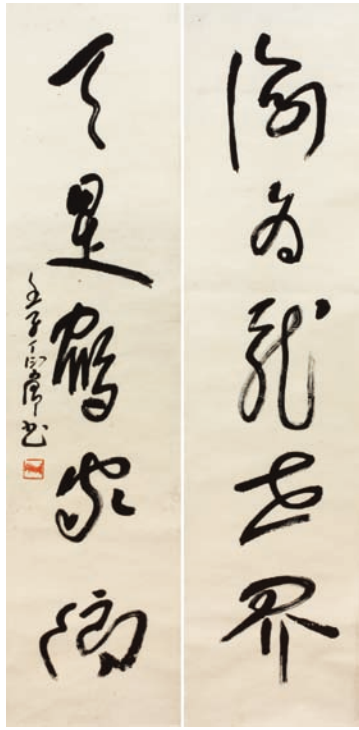 海為龍世界
天是鶴家鄉
壬子丁衍庸書